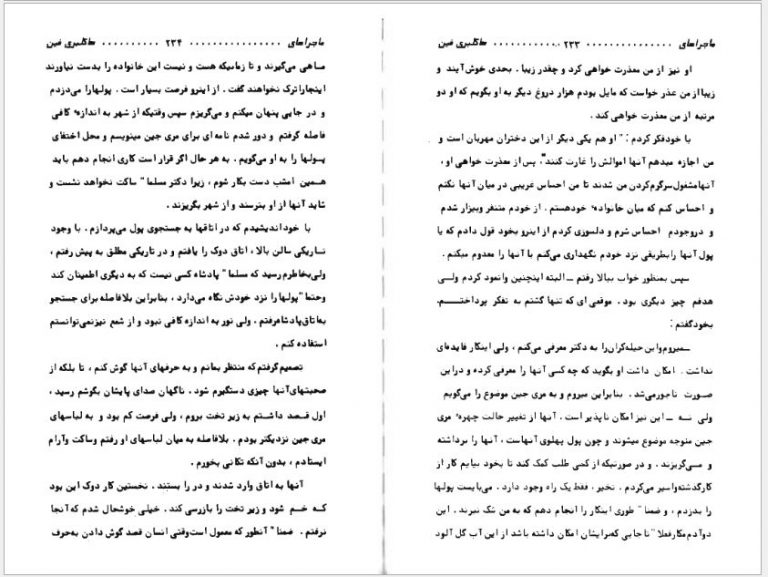 ماجراهای ................ ۲۳۳ ............ هاکلبری فین
او نیز از من معذرت خواهی کرد و چقدر زیبا . بحدی خوش‌آیند و
زیبا از من عذر خواست که مایل بودم هزار دروغ دیگر به او بگویم که او دو
مرتبه از من معذرت خواهی کند .
با خودفکر کردم : " او هم یکی دیگر از این دختران مهربان است و
من اجازه میدهم آنها اموالش را غارت کنند" . پس از معذرت خواهی او ،
آنهامشغول سرگرم‌کردن من شدند تا من احساس غریبی در میان آنها نکنم
و احساس کنم که میان خانواده خودهستم . از خودم متنفر وبیزار شدم
و دروجودم احساس شرم و دلسوزی کردم از اینرو بخود قول دادم که یا
پول آنها رابطریقی نزد خودم نگهداری می‌کنم یا آنها را معدوم میکنم .
سپس بمنظور خواب ببالا رفتم ــ البته اینچنین وانمود کردم ولــی
هدفم چیز دیگری بود . موقعی ای که تنها گشتم به تفکر پرداختـــم .
بخودگفتم :
ــ میروم‌واین حیله‌گران‌را به دکتر معرفی می‌کنم ، ولی اینکار فایده‌ای
نداشت . امکان داشت او بگوید که چه کسی آنها را معرفی کرده و در این
صورت ناجورمی‌شد . بنابراین میروم و به مری جین موضوع را می‌گویم
ولی نــه ــ این نیز امکان ناپذیر است . آنها از تغییر حالت چهره مری
جین متوجه موضوع میشوند و چون پول پهلوی آنهاست ، آنها را برداشته
و مــی‌گریزند . و در صورتیکه از کسی طلب کمک کند تا بخود بیایم کار از
کارگذشته‌واسیر می‌گردم . نخیر ، فقط یک راه وجود دارد . می‌بایست پولها
را بدزدم ، و ضمنا " طوری اینکار را انجام دهم که به من شک نبرند . این
دوآدم‌مکارفعلا " تا جایی که‌برایشان امکان داشته باشد از این آب گل آلود
ماجراهای ................ ۲۳۴ .......... هاکلبری فین
مــاهی می‌گیرند و تا زمانیکه هست و نیست این خانواده را بدست نیاورند
اینجاراترک نخواهند گفت . از اینرو فرصت بسیار است . پولهارا می‌دزدم
و در جایی پنهان میکنم و می‌گریزم سپس وقتیکه از شهر به اندازه کافی
فاصله گرفتم و دور شدم نامه ای برای مری جین مینویسم و محل اختفای
پــولها را به او می‌گویم . به هر حال اگر قرار است کاری انجام دهم باید
همــین امشب دست بکار شوم ، زیرا دکتر مسلما " ساکت نخواهد نشست و
شاید آنها از او بترسند و از شهر بگریزند .
با خوداندیشیدم که در اتاقها به جستجوی پول می‌پردازم . با وجود
تــاریکی سالن بالا ، اتاق دوک را یافتم و در تاریکی مطلق به پیش رفتم ،
ولی‌بخاطرم رسید که مسلما " پادشاه کسی نیست که به دیگری اطمینان کند
وحتما " پولها را نزد خودش نگاه می‌دارد ، بنابراین بلافاصله برای جستجو
به‌اتاق‌پادشاه‌رفتم . ولی نور به اندازه کافی نبود و از شمع نیزنمی‌توانستم
استفاده کنم .
تصمیم‌گرفتم‌که منتظر بمانم و به حرفهای آنها گوش کنم ، تا بلکه از
صحبتهای‌آنها چیزی دستگیرم شود . ناگهان صدای پایشان بگوشم رسید ،
اول قــصد داشــتم به زیر تخت بروم ، ولی فرصت کم بود و به لباسهای
مری جین نزدیکتر بودم . بلافاصله به میان لباسهای او رفتم وساکت وآرام
ایستادم ، بدون آنکه تکانی بخورم .
آنها به اتاق وارد شدند و در را بستند . نخستین کار دوک این بود
کــه خــم شود و زیر تخت را بازرسی کند . خیلی خوشحال شدم که آنجا
نرفتم . ضمنا " آنطور که معمول است‌وقتی انسان قصد گوش دادن به‌حرف